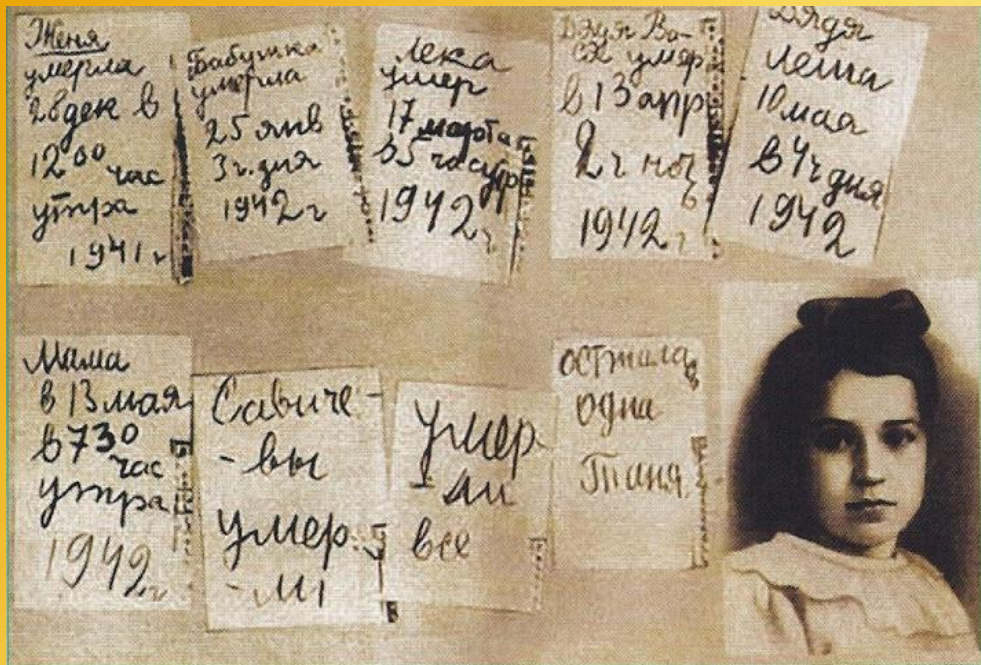 Женя
умерла
28 дек в
12 00 час
утра
1941 г
Бабушка
умерла
25 янв
3 ч. дня
1942 г
Лека
умер
17 марта
в 5 час утр
1942 г
Дядя Ва-
ся умер
в 13 апр
2 ч ночь
1942 г
Дядя
Леша
10 мая
в 4 ч дня
1942
Мама
в 13 мая
в 7 30
час
утра
1942 г
Савиче-
-вы
умер
-ли
Умер
-ли
все
одна
Таня